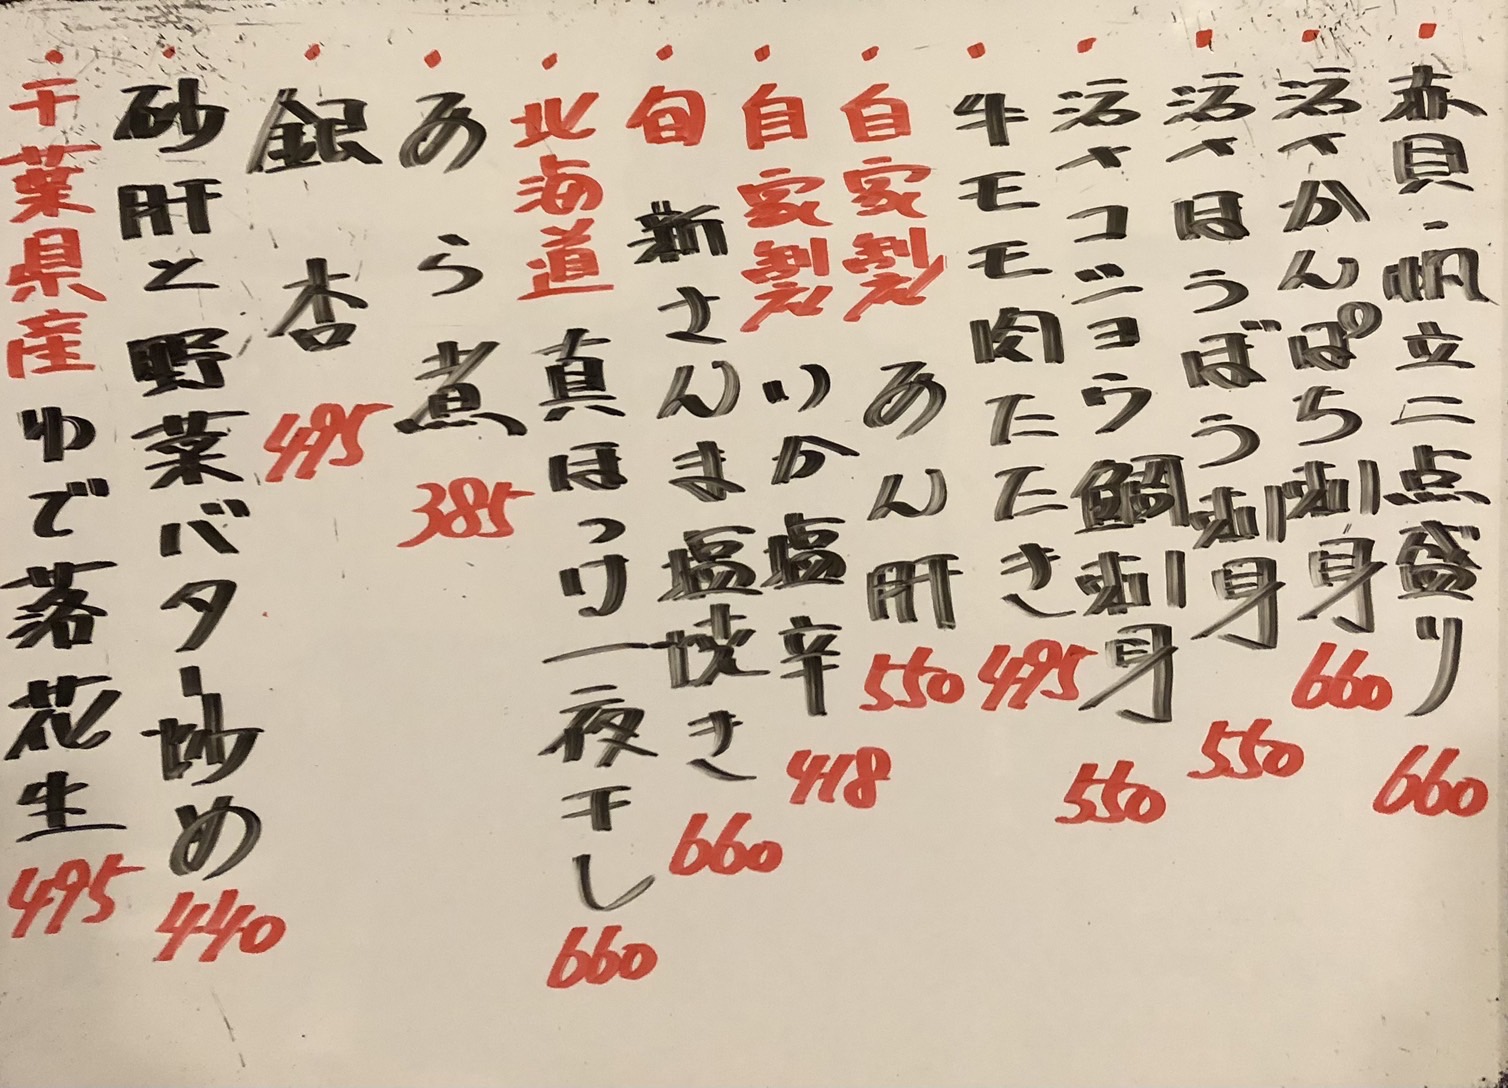 赤貝・帆立二点盛り 660
活〆かんぱち刺身 660
活〆ほうぼう刺身 550
活〆コショウ鯛刺身 550
牛モモ肉たたき 495
自家製 あん肝 550
自家製 いか塩辛 418
旬 新さんま塩焼き 660
北海道 真ほっけ一夜干し 660
あら煮 385
銀杏 495
砂肝と野菜バター炒め 440
千葉県産 ゆで落花生 495